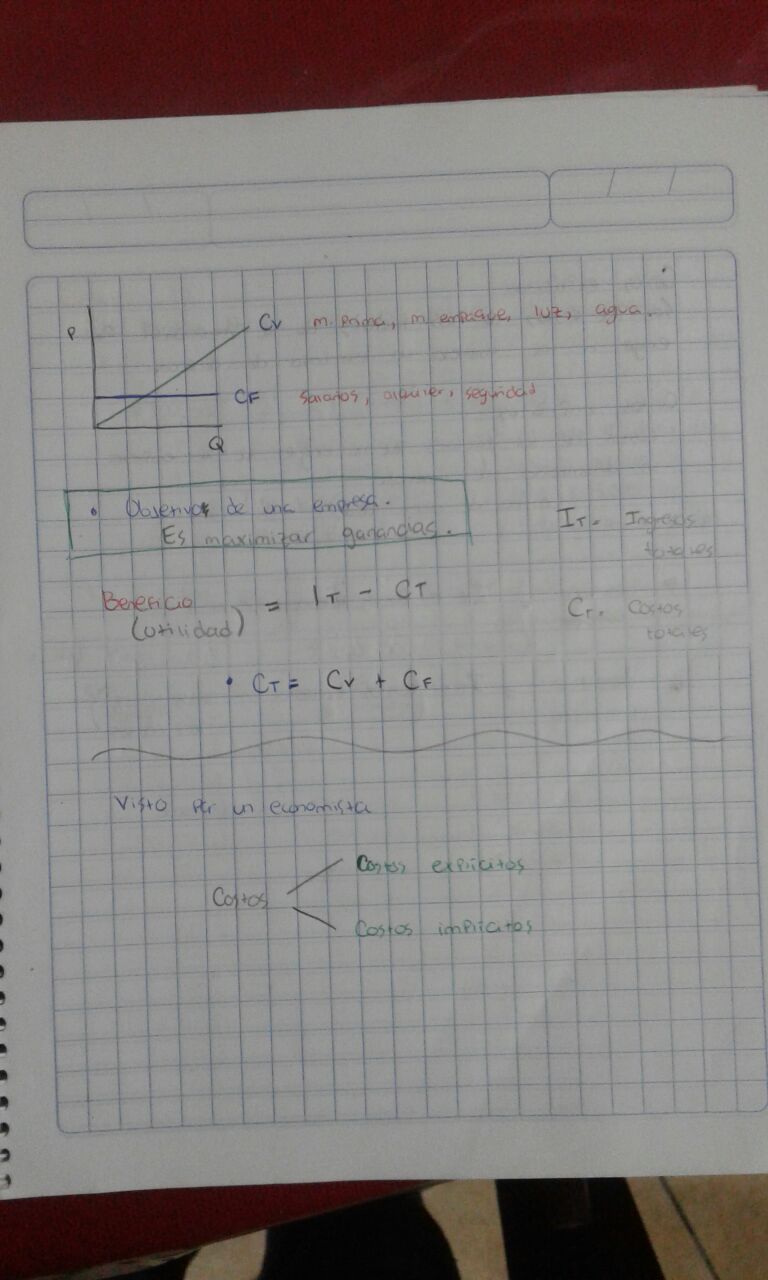 P
Cv m. Prima, m empaque, luz, agua.
CF Salarios, alquiler, seguridad
Q
• Objetivos de una empresa.
Es maximizar ganancias.
IT. Ingresos
totales
Beneficio = IT - CT
(utilidad)
CT. Costos
totales
• CT = Cv + CF
Visto por un economista
Costos
Costos explícitos
Costos implícitos